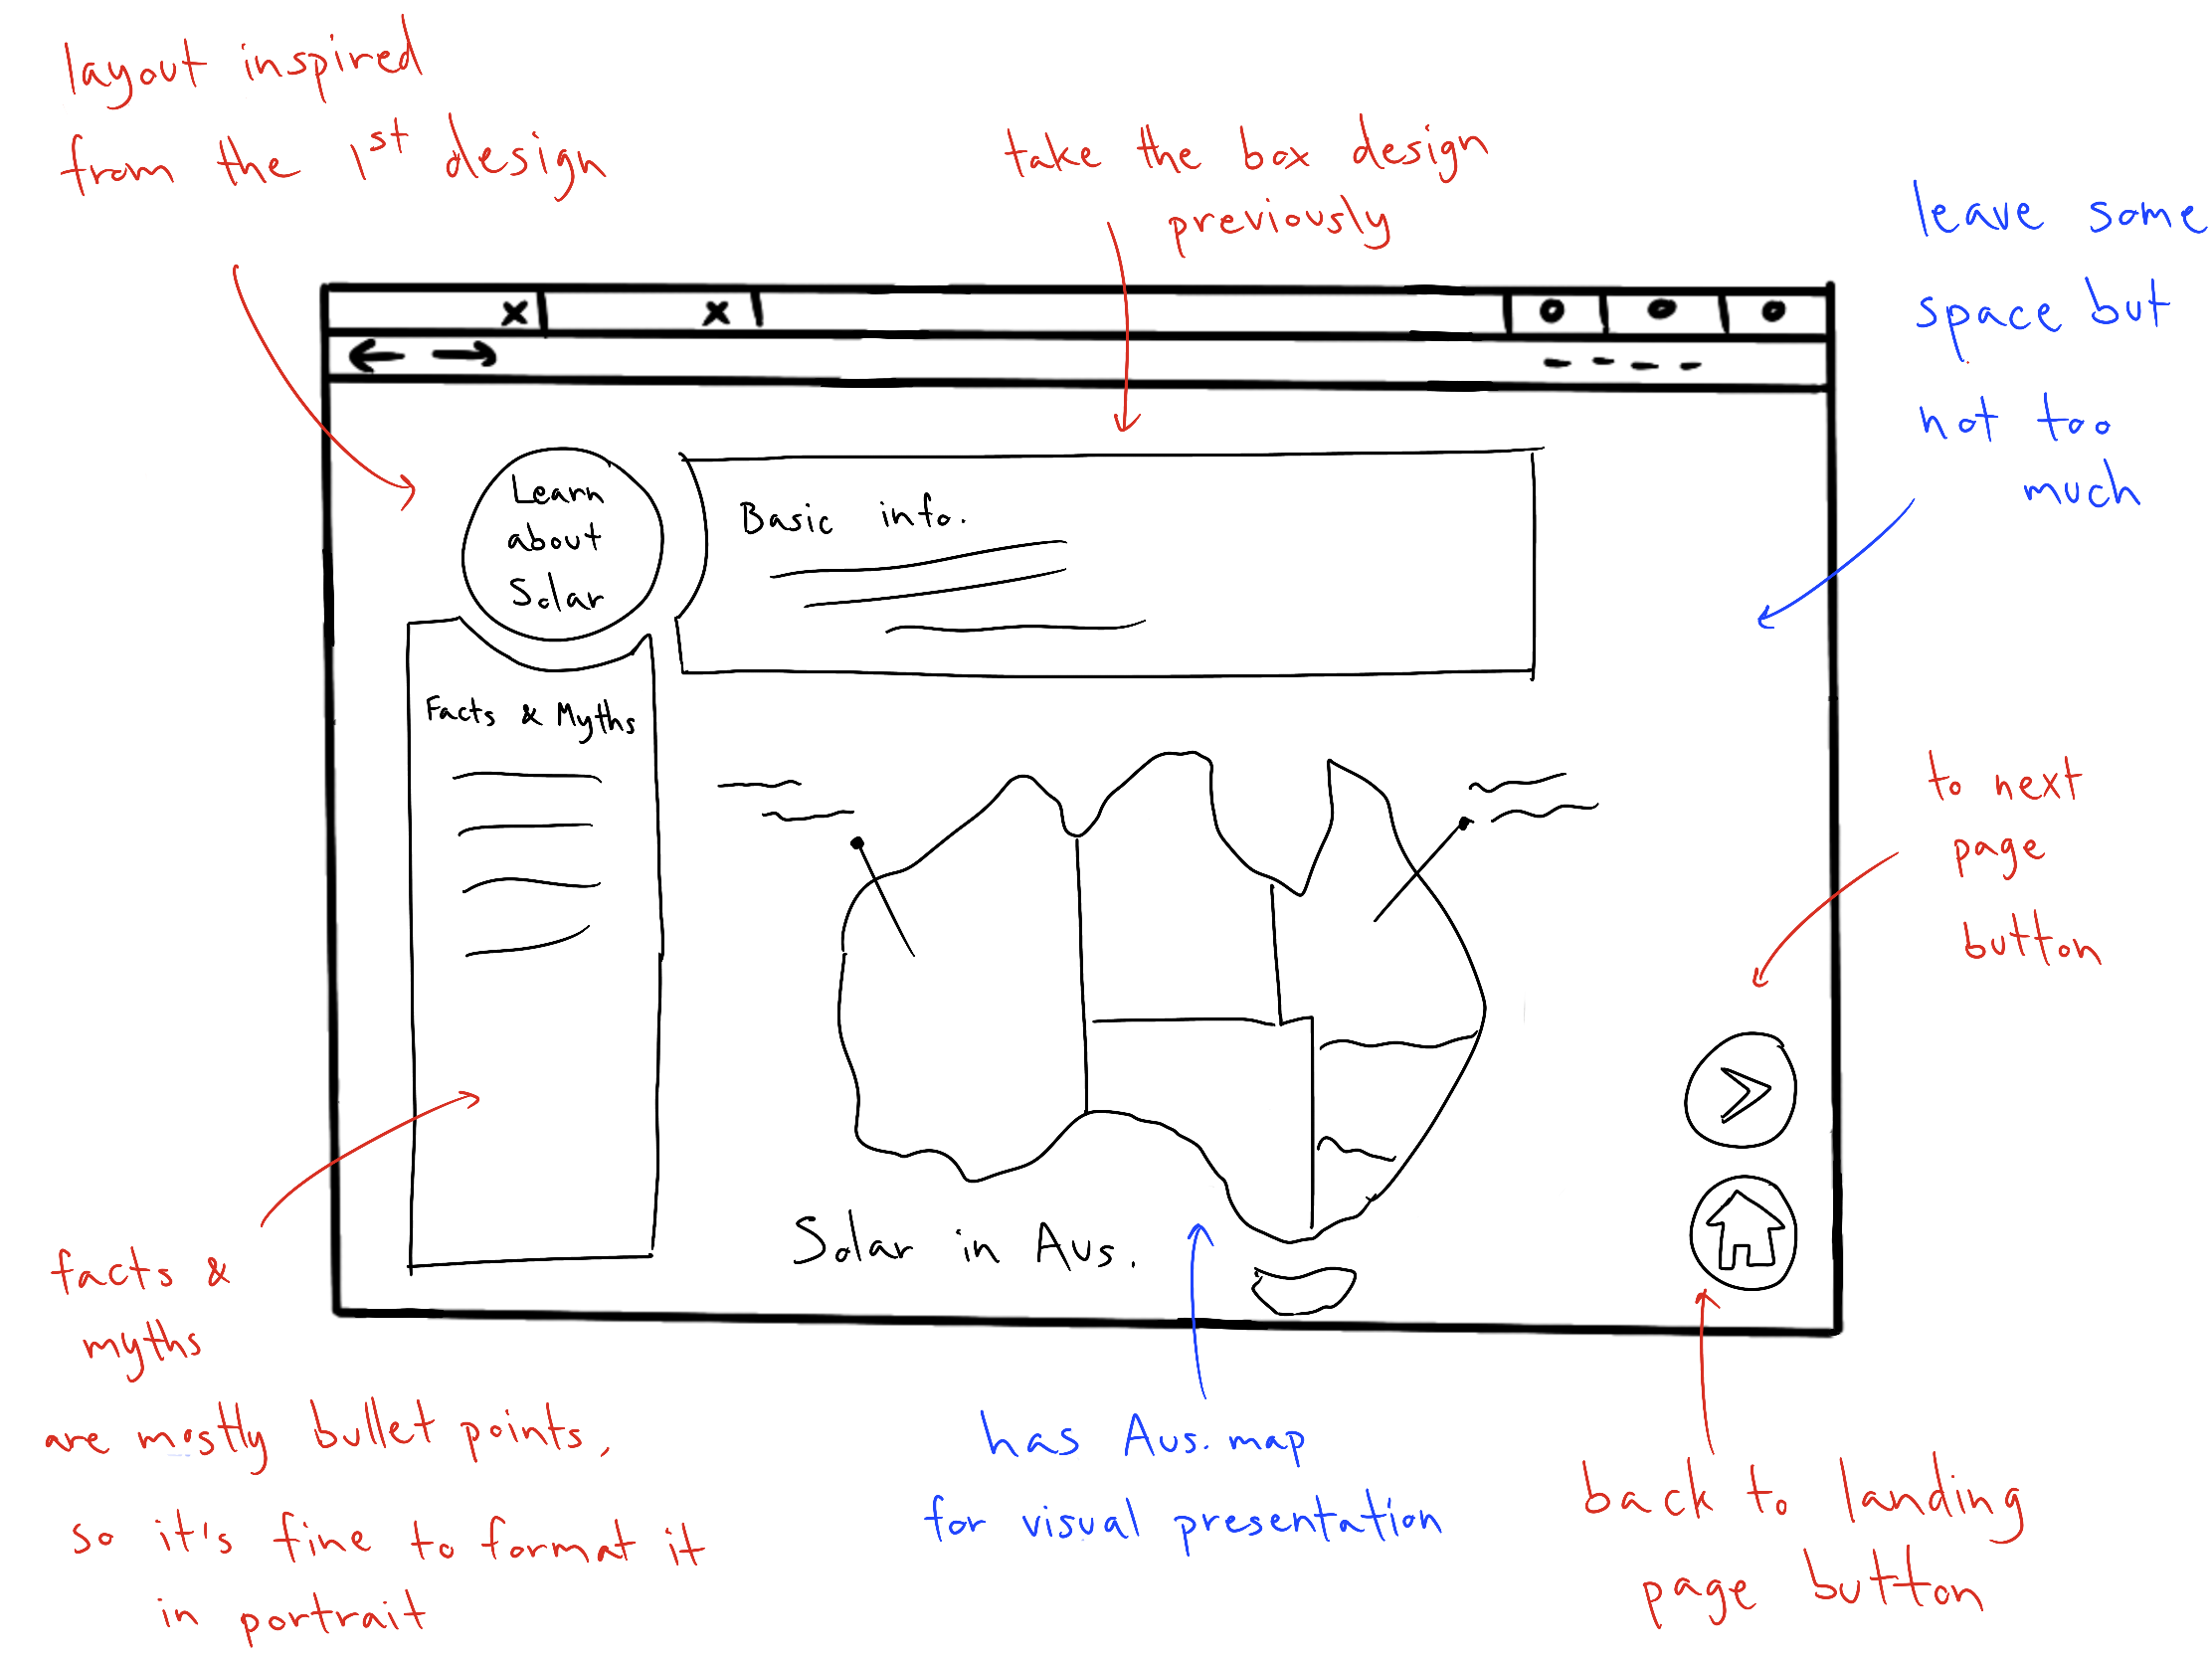 layout inspired
from the 1st design
take the box design
previously
leave some
space but
not too
much
Learn
about
Solar
Basic info.
Facts & Myths
to next
page
button
Solar in Aus.
facts &
myths
are mostly bullet points,
so it's fine to format it
in portrait
has Aus. map
for visual presentation
back to landing
page button